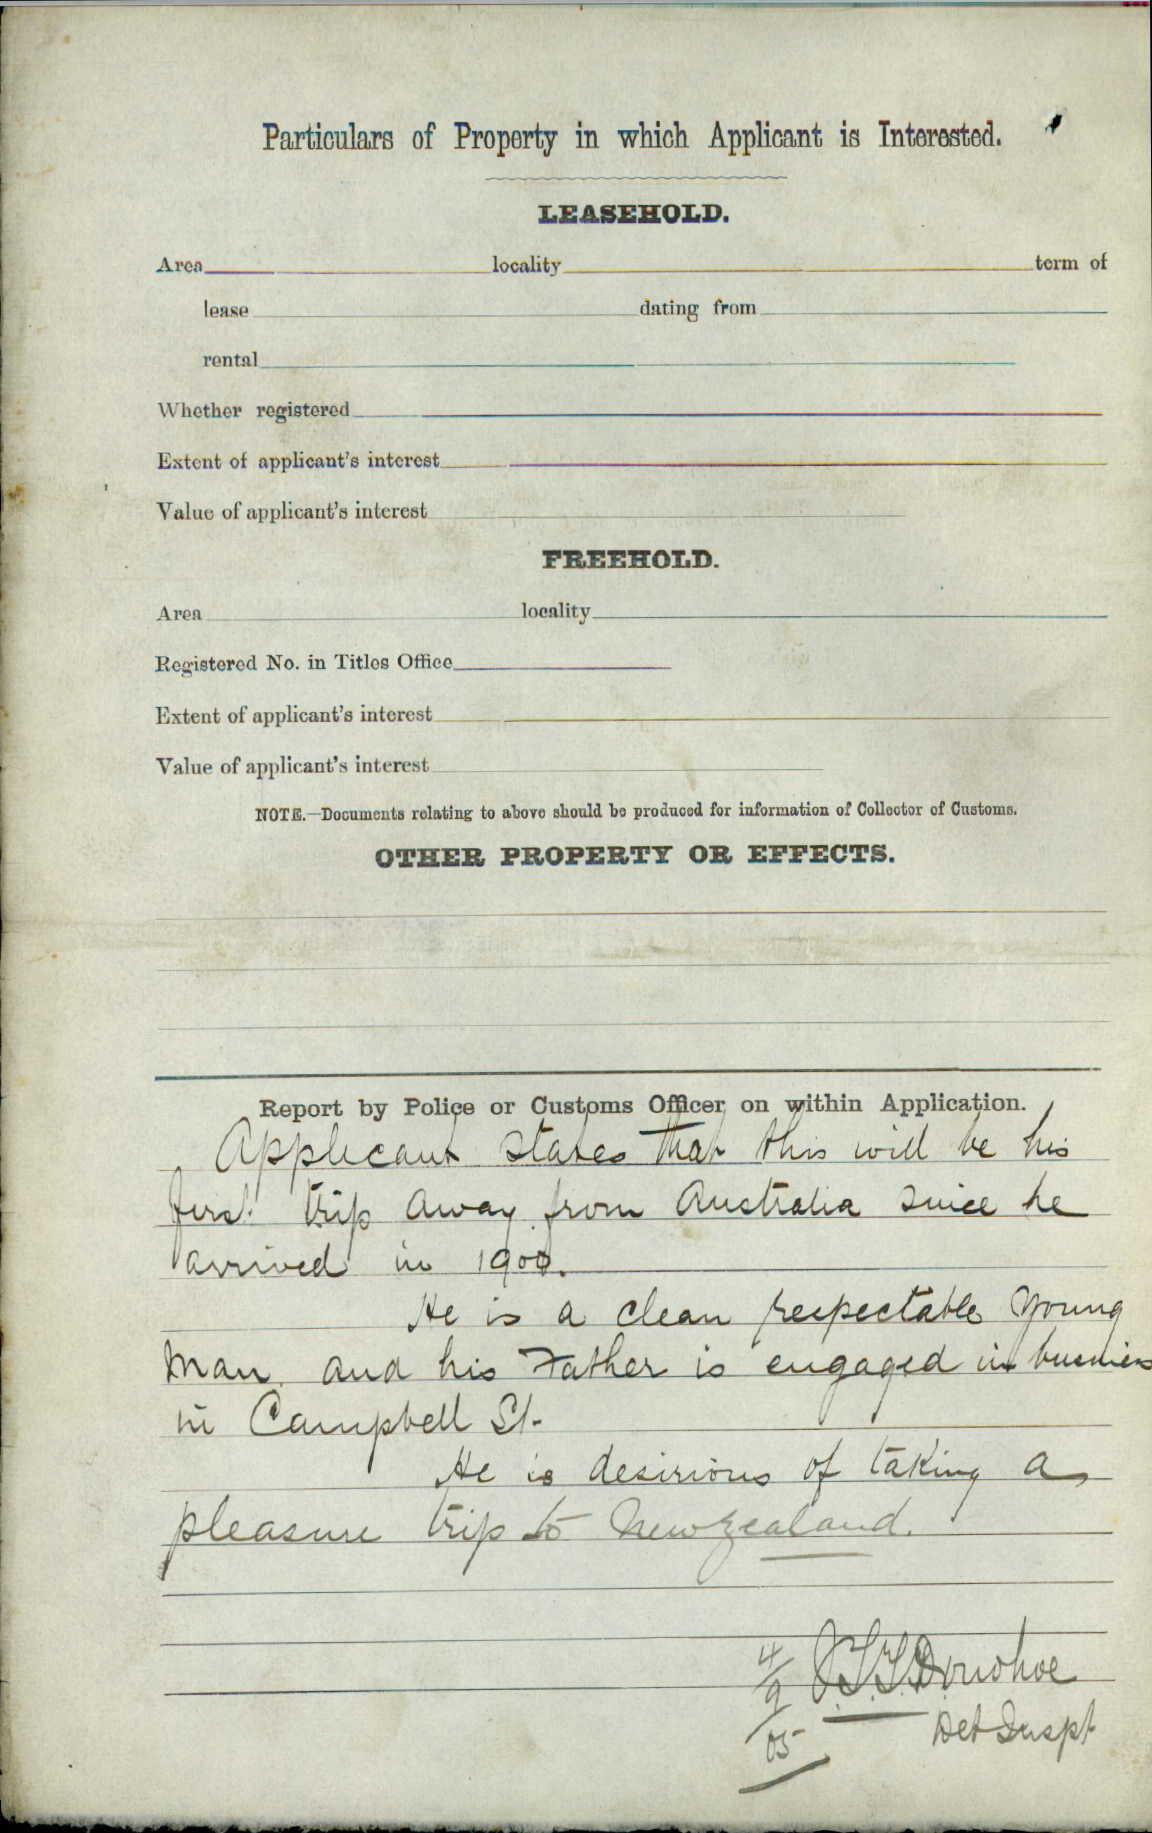 Particulars of Property in which Applicant is Interested.
LEASEHOLD.
Area locality term of
lease dating from
rental
Whether registered
Extent of applicant's interest
Value of applicant's interest
FREEHOLD.
Area locality
Registered No. in Titles Office
Extent of applicant's interest
Value of applicant's interest
NOTE.—Documents relating to above should be produced for information of Collector of Customs.
OTHER PROPERTY OR EFFECTS.
Report by Police or Customs Officer on within Application.
Applicant states that this will be his
first trip away from Australia since he
arrived in 1900.
He is a clean respectable young
man and his Father is engaged in business
in Campbell St.
He is desirious of taking a
pleasure trip to New Zealand.
4/9/05 Donohoe
Det Inspt